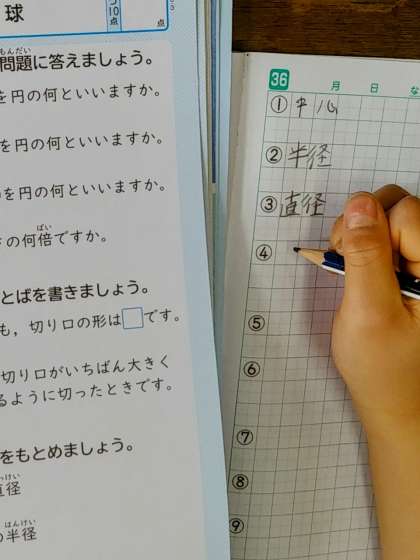 球
つ10
点
点
もんだい
問題に答えましょう。
を円の何といいますか。
を円の何といいますか。
を円の何といいますか。
ばい
の何倍ですか。
とばを書きましょう。
も，切り口の形は□です。
切り口がいちばん大きく
るように切ったときです。
をもとめましょう。
っけい
直径
はんけい
の半径
36
月 日 な
① 中心
② 半径
③ 直径
④
⑤
⑥
⑦
⑧
⑨